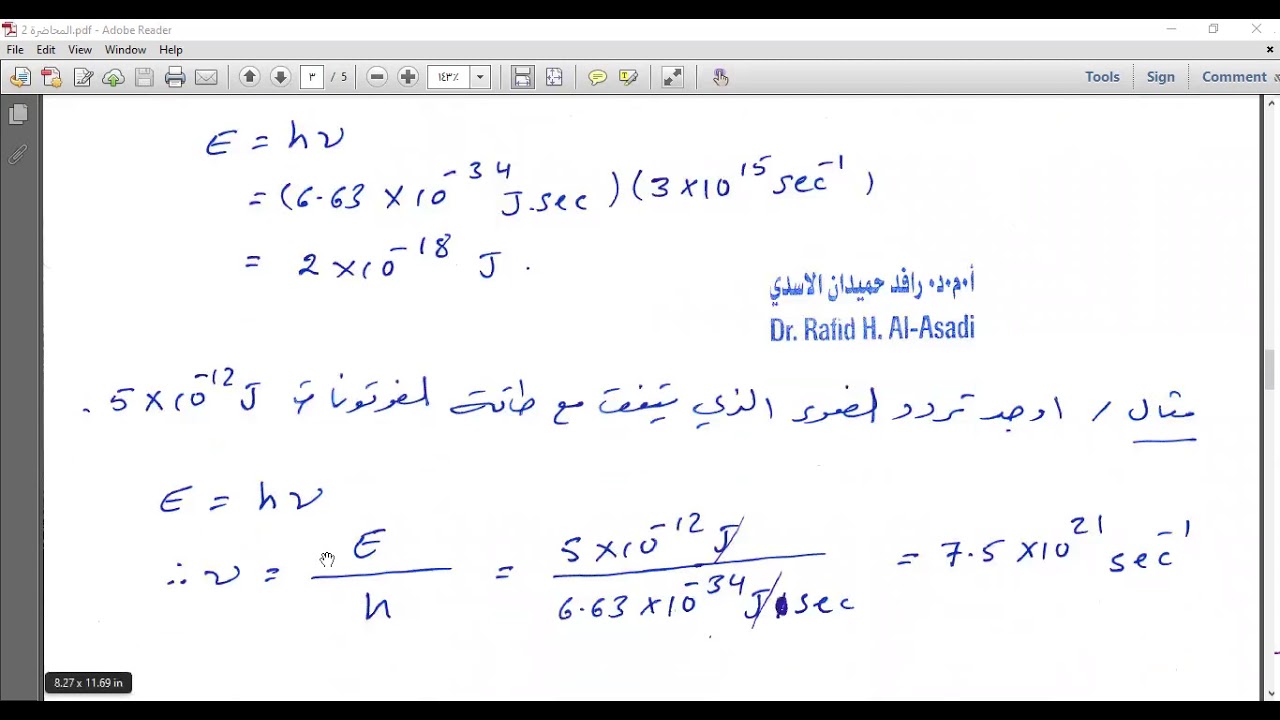 المحاضرة 2.pdf - Adobe Reader
File Edit View Window Help
٣ / 5 ١٤٣٪ Tools Sign Comment
E = hν
= (6.63 × 10⁻³⁴ J.sec) (3 × 10¹⁵ sec⁻¹)
= 2 × 10⁻¹⁸ J .
أ.م.د. رافد حميدان الاسدي
Dr. Rafid H. Al-Asadi
مثال / اوجد تردد الضوء الذي يتفق مع طاقة الفوتونات 5 × 10⁻¹² J .
E = hν
∴ ν = E / h = 5 × 10⁻¹² J / 6.63 × 10⁻³⁴ J.sec = 7.5 × 10²¹ sec⁻¹
8.27 x 11.69 in